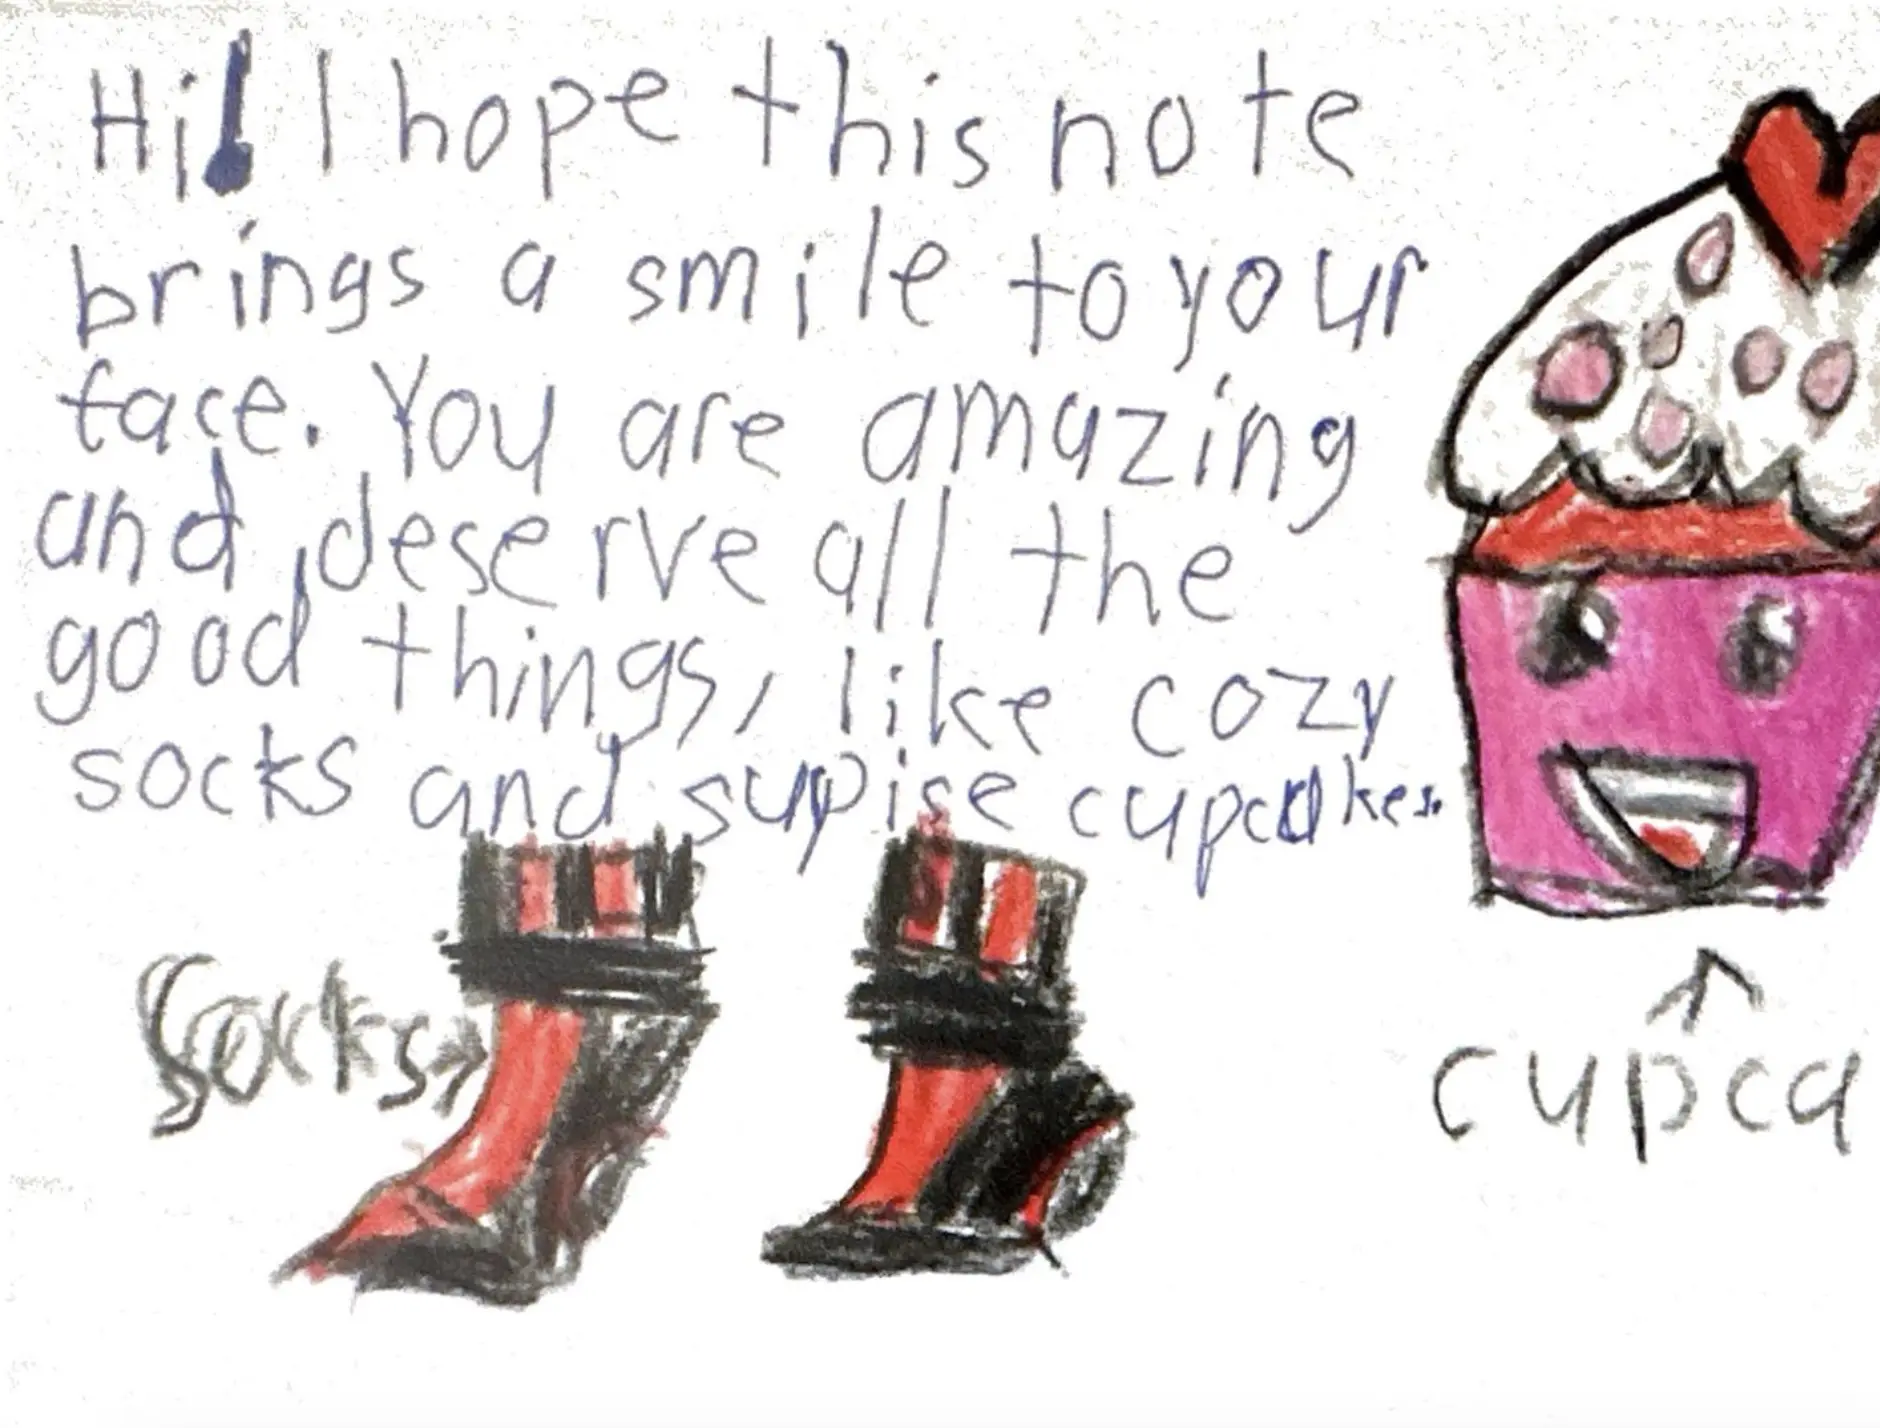 Hi! I hope this note
brings a smile to your
face. You are amazing
and deserve all the
good things, like cozy
socks and supise cupcakes.
socks
cupca